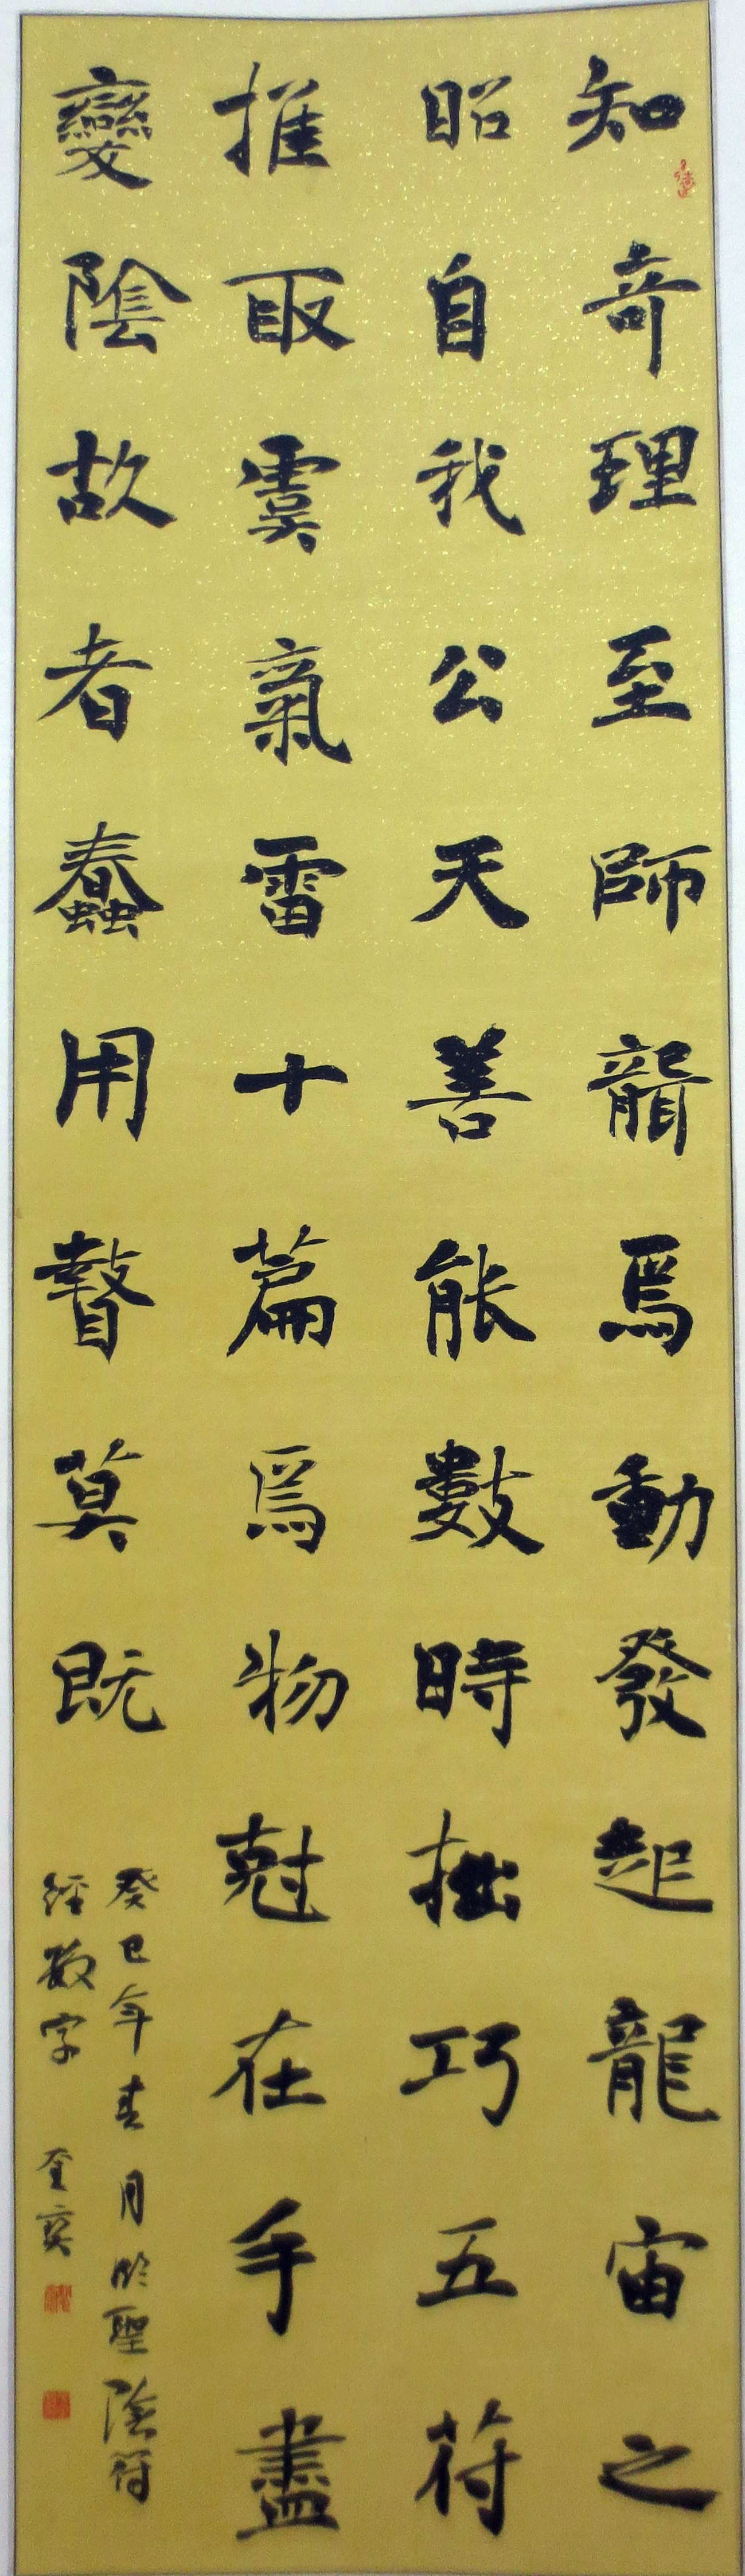 知奇理至師龍焉動發起龍宙之
昭自我公天善能數時拙巧五符
推取雲氣雷十篇焉物尅在手盡
變陰故者蠢用瞽莫既
癸巳年春月 聖陰符
經數字